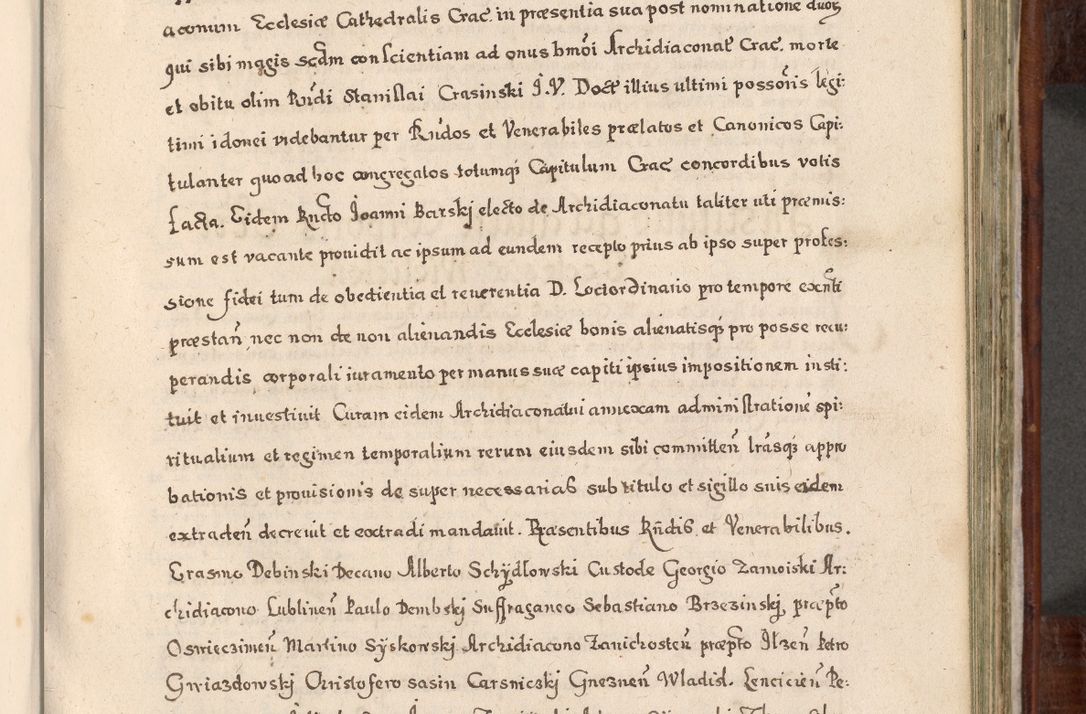 aconum Ecclesiæ Cathedralis Crac̃ in præsentia sua post nominatione duoꝝ
qui sibi magis scdm conscientiam ad onus bmõi Archidiaconat Crac. morte
et obitu olim Rñdi Stanislai Crasinski I.V. Doct illius ultimi possoris legi:
timi idonei videbantur per Rñdos et Venerabiles prælatos et Canonicos Capi:
tulanter quoad hoc congregatos totumqȝ Capitulum Crac concordibus votis
facta. Eidem Rñdo Ioanni Barskj electo de Archidiaconatu taliter uti præmis:
sum est vacante prouidit ac ipsum ad eundem recepto prius ab ipso super profes:
sione fidei tum de obedientia et reuerentia D. Lociordinario pro tempore exñti
præstañ nec non de non alienandis Ecclesiæ bonis alienatisqȝ pro posse recu:
perandis corporali iuramento per manus suæ capiti ipsius impositionem insti:
tuit et inuestiuit Curam eidem Archidiaconatui annexam administratione spi:
ritualium et regimen temporalium rerum eiusdem sibi committeñ lrãsqȝ appro
bationis et prouisionis de super necessarias sub titulo et sigillo suis eidem
extradeñ decreuit et extradi mandauit. Præsentibus Rñdis et Venerabilibus.
Erasmo Debinski Decano Alberto Schÿdlowski Custode Georgio Zamoiski Ar:
chidiacono Lublineñ Paulo Dembskj Suffraganeo Sebastiano Brzezinskj, præpto
Oswieczimeñ Martino Sÿskowskj Archidiacono Zanichosteñ præpto Ilzeñ Petro
Gwiazdowskj Christofero sasin Carsniczkj Gnezneñ Wladisl. Lencicieñ Pe: